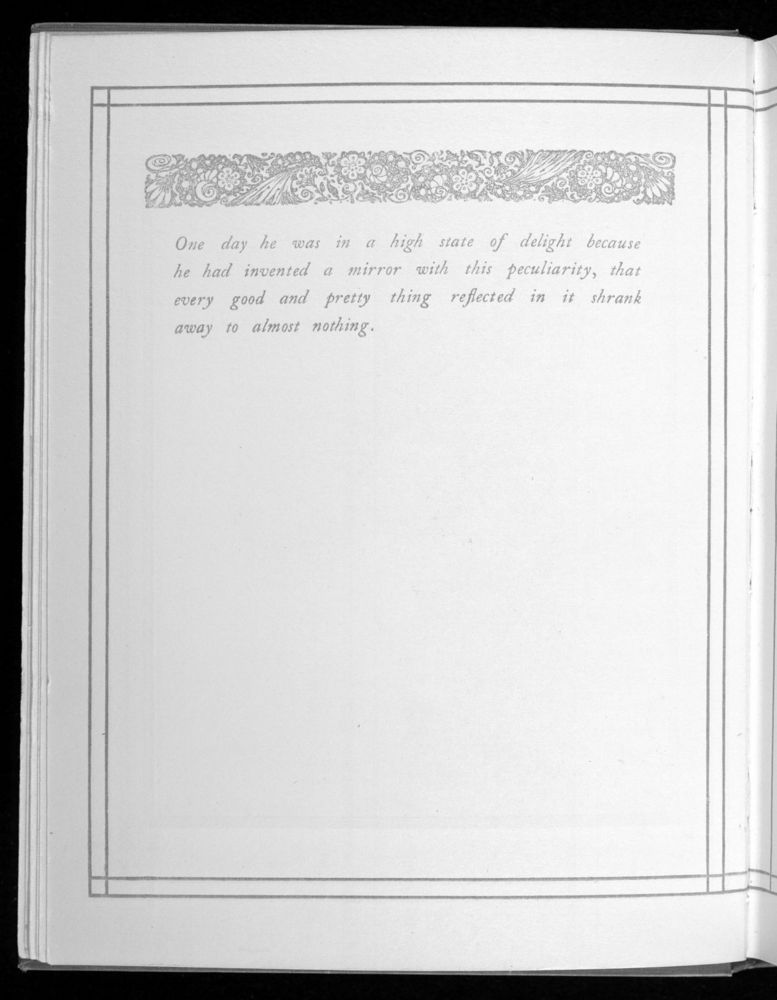 One day he was in a high state of delight because
he had invented a mirror with this peculiarity, that
every good and pretty thing reflected in it shrank
away to almost nothing.